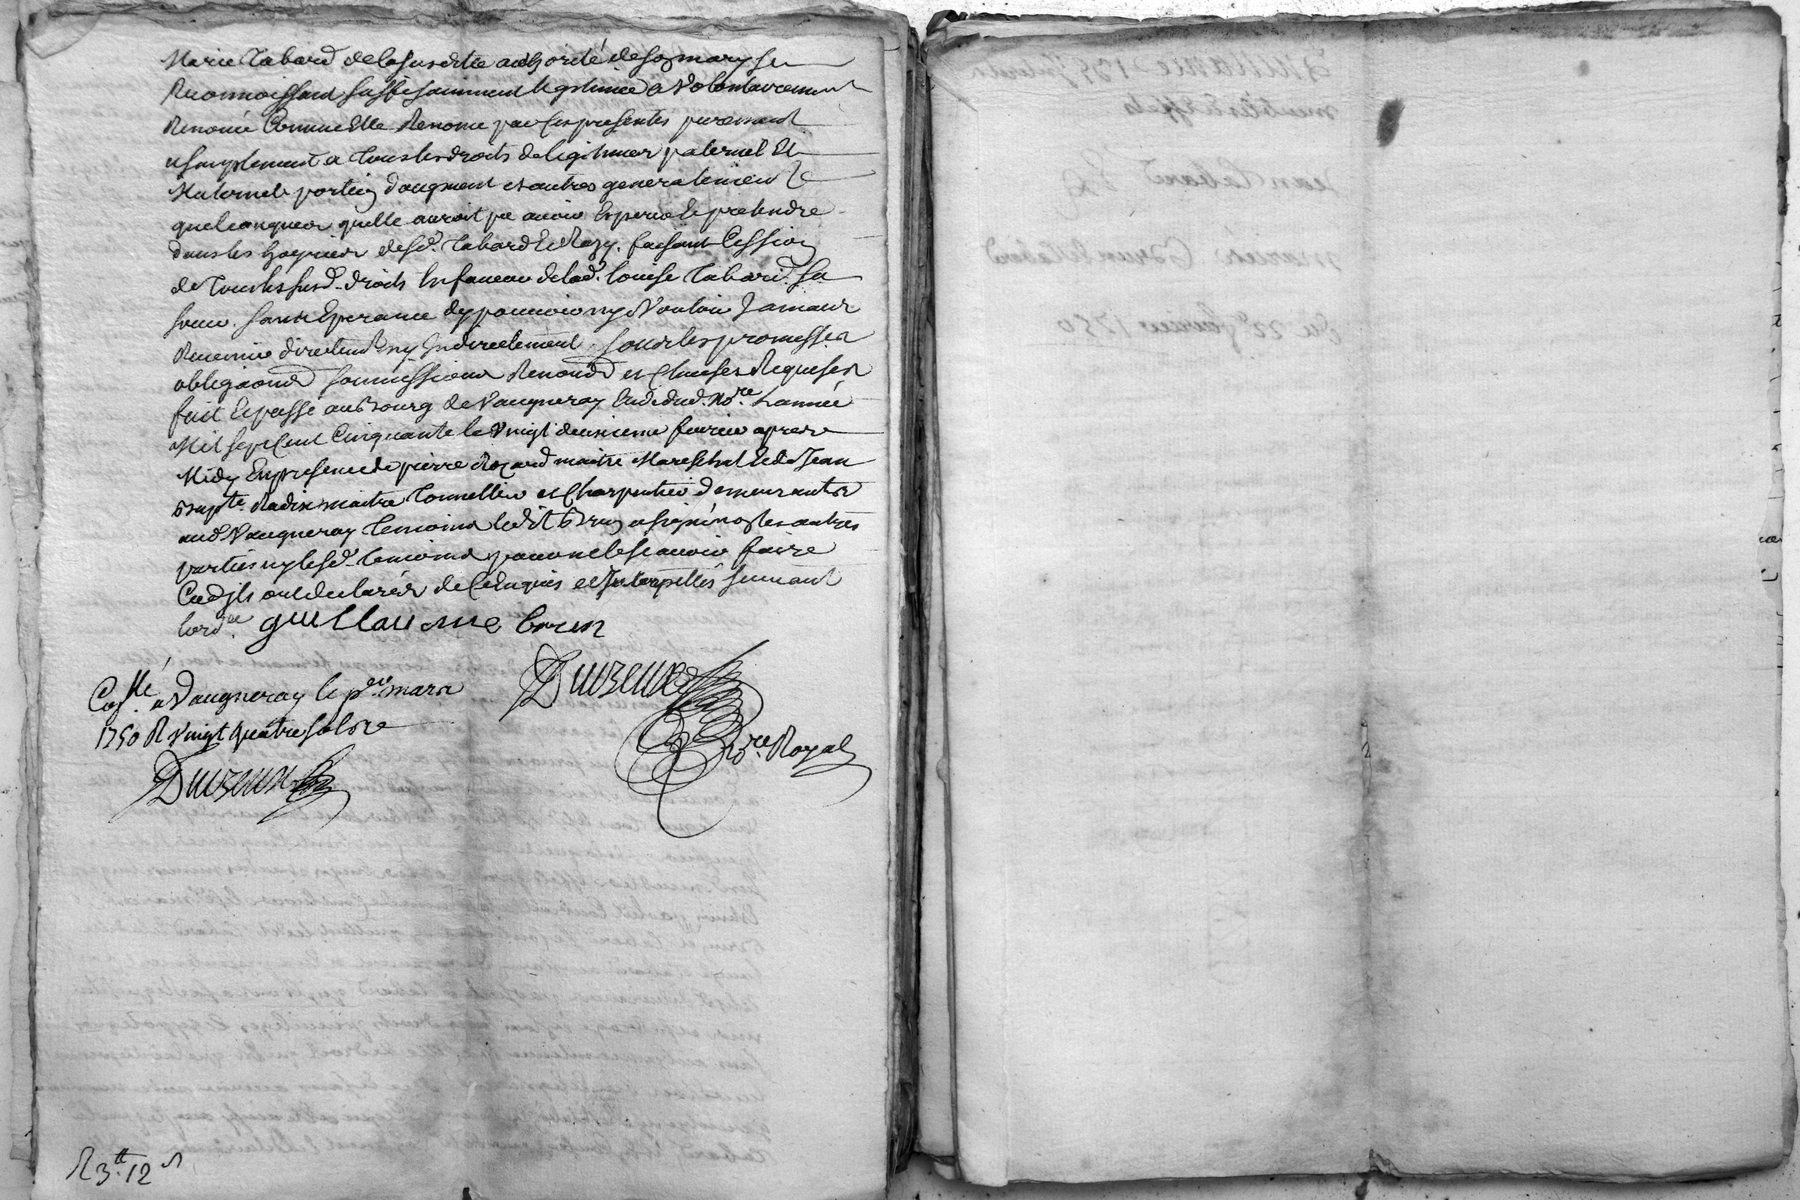 Marie Tabard de la susditte authorité de son mary se
Reconnoissant suffisamment legitimée a volontairement
Renoncé Comme Elle Renonce par ces presentes purement
et simplement a tous les droits de legitimes paternel Et
Maternel portion d'augment et autres generalement
quelconques quelle auroit pu avoir Esperer Et pretendre
dans les hoyries desd. Tabard Et Razy. faisant Cession
de Tous lesusd. droits En faveur de lad. louise Tabard. sa
soeur. sans Esperance dy pouvoir ny Vouloir Jamais
Revenir directemt. ny Indirectement. sous les promesses
obligaons soumissions Renoncd. et Clauses Requises
fait Et passé au Bourg de Vaugneray Etude dud. Nore. L'année
Mil sept Cent Cinquante le Vingt deuxieme fevrier apres
Midy En presence de pierre Rozard maitre Mareschal Et de Jean
Bapte. Radix maitre Tonnellier et Charpentier demeurants
aud. Vaugneray Temoins ledit Brun a signé non les autres
parties ny lesd. Temoins pour ne le sçavoir faire
Cequ'ils ont declarés de Ce Enquis et Interpellés suivant
lord.ce guillaume brun
Collé. a Vaugneray le p.er mars
1750 R Vingt quatre sols
Nore. Royal
R 3 tt. 12 s